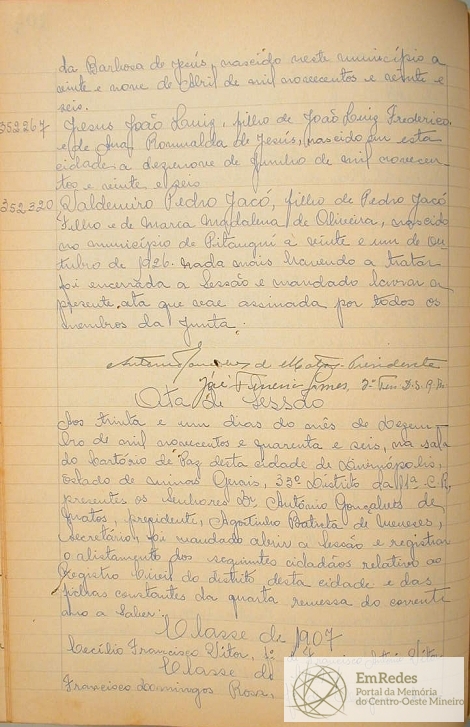 da Barbosa de Jesús, nascido neste município a
vinte e nove de Abril de mil novecentos e vinte e
seis.
352267 Jesus João Luiz, filho de João Luiz Frederico
e de Ana Romualda de Jesús, nascido em esta
cidade a dezenove de Junho de mil novecen-
tos e vinte e seis
352320 Valdemiro Pedro Jacó, filho de Pedro Jacó
Filho e de Maria Magdalena de Oliveira, nascido
no município de Pitangui a vinte e um de Ou
tubro de 1926. nada mais havendo a tratar
foi encerrada a Sessão e mandado lavrar a
presente ata que vae assinada por todos os
membros da Junta.
Antonio Gonçalves de Matos Presidente
José
Ata de Sessão
Aos trinta e um dias do mês de Dezem
bro de mil novecentos e quarenta e seis, na sala
do Cartório de Paz desta cidade de Divinópolis,
Estado de Minas Gerais, 33º Distrito da C.R,
presentes os senhores Dr Antônio Gonçalves de
Matos, presidente, Agostinho Batista de Menezes,
Secretário, foi mandado abrir a sessão e registrar
o alistamento dos seguintes cidadãos relativo ao
Registro Civil do distrito desta cidade e das
folhas constantes da quarta remessa do corrente
ano a Saber:
Classe de 1907
Cecílio Francisco Vitor, Francisco
Classe de
Francisco Domingos Rosa,
EmRedes
Portal da Memória
do Centro-Oeste Mineiro